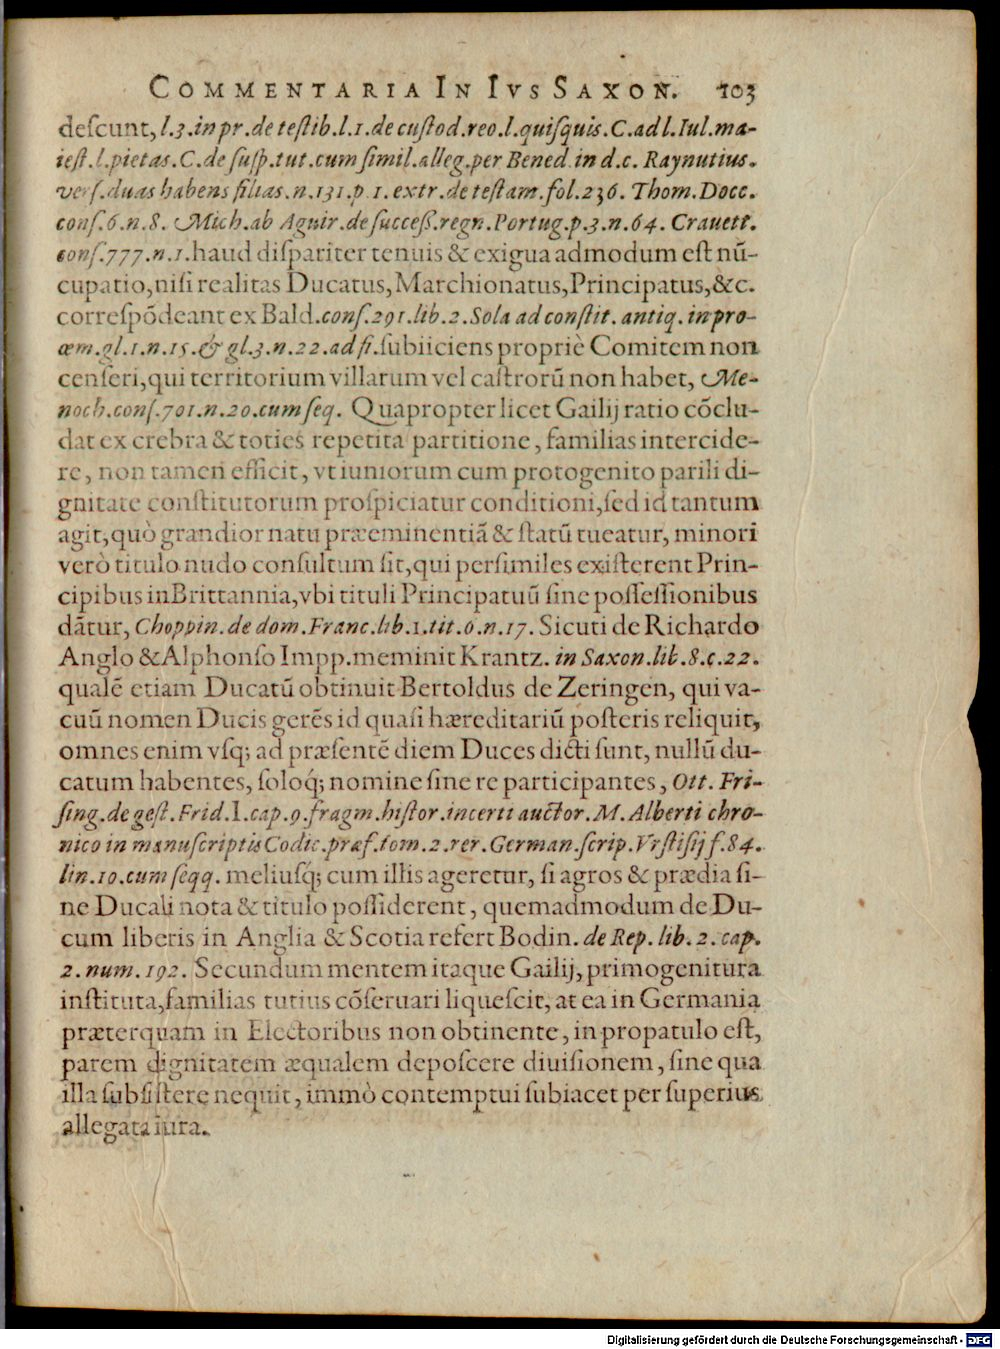 COMMENTARIA IN IVS SAXON. 103
deſcunt, l.3.in pr. de teſtib.l.1.de cuſtod.reo.l.quiſquis.C.ad l.Iul.ma-
ieſt.l.pietas.C.de ſuſp.tut.cum ſimil.alleg.per Bened.in d.c. Raynutius.
verſ.duas habens filias.n.131.p.1.extr.de teſtam.fol.236. Thom.Docc.
conſ.6.n.8. Mich.ab Aguir.de ſucceſſ.regn.Portug.p.3.n.64. Crauett.
conſ.777.n.1.haud diſpariter tenuis & exigua admodum eſt nũ-
cupatio,niſi realitas Ducatus,Marchionatus,Principatus,&c.
correſpõdeant ex Bald.conſ.291.lib.2.Sola ad conſtit. antiq. in pro-
œm.gl.1.n.15.& gl.3.n.22.ad fi.ſubiiciens propriè Comitem non
cenſeri,qui territorium villarum vel caſtrorũ non habet, Me-
noch.conſ.701.n.20.cum ſeq. Quapropter licet Gailij ratio cõclu-
dat ex crebra & toties repetita partitione, familias intercide-
re, non tamen efficit, vt iuniorum cum protogenito parili di-
gnitate conſtitutorum proſpiciatur conditioni,ſed id tantum
agit,quò grandior natu præeminentiã & ſtatũ tueatur, minori
verò titulo nudo conſultum ſit,qui perſimiles exiſterent Prin-
cipibus inBrittannia,vbi tituli Principatuũ ſine poſſeſſionibus
dãtur, Choppin.de dom.Franc.lib.1.tit.6.n.17. Sicuti de Richardo
Anglo &Alphonſo Impp.meminit Krantz. in Saxon.lib.8.c.22.
qualẽ etiam Ducatũ obtinuit Bertoldus de Zeringen, qui va-
cuũ nomen Ducis gerẽs id quaſi hæreditariũ poſteris reliquit,
omnes enim vſq; ad præſentẽ diem Duces dicti ſunt, nullũ du-
catum habentes, ſoloq́; nomine ſine re participantes, Ott. Fri-
ſing.de geſt.Frid.I.cap.9.fragm.hiſtor.incerti auctor.M.Alberti chro-
nico in manuſcriptis Codic.præf.tom.2.rer.German.ſcrip.Vrſtiſij f.84.
lin.10.cum ſeqq. meliuſq́; cum illis ageretur, ſi agros & prædia ſi-
ne Ducali nota & titulo poſſiderent, quemadmodum de Du-
cum liberis in Anglia & Scotia refert Bodin. de Rep. lib. 2. cap.
2. num. 192. Secundum mentem itaque Gailij, primogenitura
inſtituta,familias tutius cõſeruari liqueſcit, at ea in Germania
præterquam in Electoribus non obtinente, in propatulo eſt,
parem dignitatem æqualem depoſcere diuiſionem, ſine qua
illa ſubſiſtere nequit, immò contemptui ſubiacet per ſuperius
allegata iura.
Digitalisierung gefördert durch die Deutsche Forschungsgemeinschaft - DFG